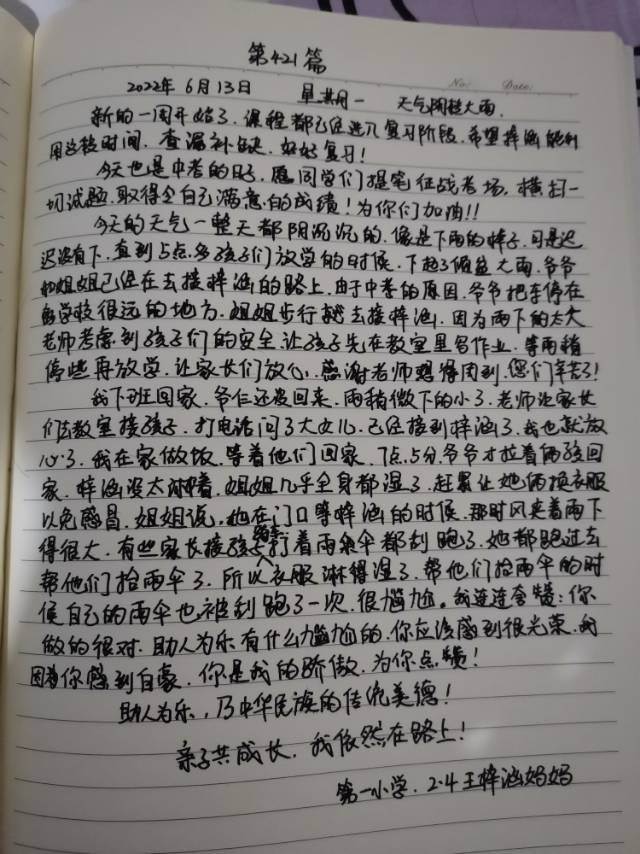 第421篇
No. Date.
2022年6月13日 星期一 天气阴转大雨.
新的一周开始了.课程都已经进入复习阶段.希望梓涵能利
用这段时间.查漏补缺.好好复习!
今天也是中考的日子.愿同学们提笔征战考场.横扫一
切试题.取得令自己满意的成绩!为你们加油!!
今天的天气一整天都阴沉沉的.像是下雨的样子.可是迟
迟没有下.直到5点多孩子们放学的时候.下起了倾盆大雨.爷爷
和姐姐已经在去接梓涵的路上.由于中考的原因.爷爷把车停在
离学校很远的地方.姐姐步行去接梓涵.因为雨下的太大
老师考虑到孩子们的安全.让孩子先在教室里写作业.等雨稍
停些再放学.让家长们放心.感谢老师想得周到.您们辛苦了!
我下班回家.爷仨还没回来.雨稍微下的小了.老师让家长
们去教室接孩子.打电话问了大女儿.已经接到梓涵了.我也就放
心了.我在家做饭.等着他们回家.7点5分爷爷才拉着俩孩回
家.梓涵没太淋着.姐姐几乎全身都湿了.赶紧让她俩换衣服
以免感冒.姐姐说.她在门口等梓涵的时候.那时风夹着雨下
得很大.有些家长接孩子打着雨伞都刮跑了.她都跑过去
帮他们拾雨伞了.所以衣服淋得湿了.帮他们拾雨伞的时
候自己的雨伞也被刮跑了一次.很尴尬。我连连夸赞:你
做的很对.助人为乐有什么尴尬的.你应该感到很光荣.我
因为你感到自豪.你是我的骄傲.为你点赞!
助人为乐,乃中华民族的传统美德!
亲子共成长.我依然在路上!
第一小学.2.4王梓涵妈妈